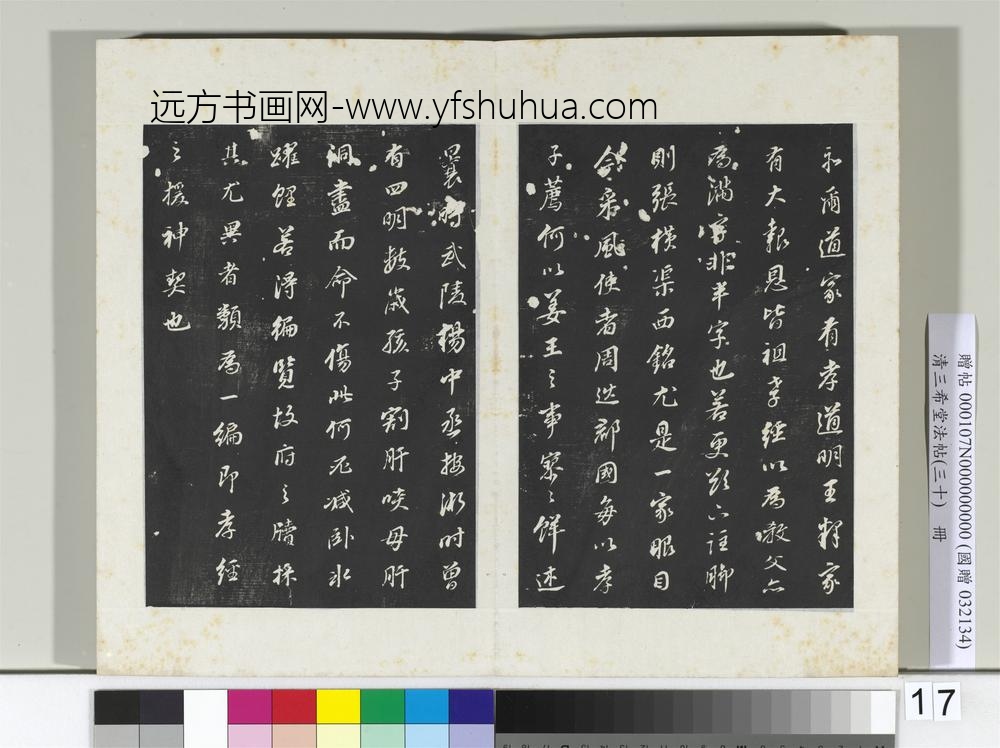 远方书画网-www.yfshuhua.com
爾道家有孝道明王釋家
有大報恩皆祖孝經以為教父亦
為滿字非半字也若更欲下註腳
則張橫渠西銘尤是一家眼目
今采風使者周巡郡國每以孝
子薦何以姜王之事寥寥鮮述
曩時武陵楊中丞按浙時曾
有四明數歲孩子割肝啖母肝
洞盡而命不傷此何不減臥冰
躍鯉若得編覽故府之牘採
其尤異者類為一編即孝經
之援神契也
贈帖 000107N000000000 (國贈 032134)
清三希堂法帖(三十) 冊
17